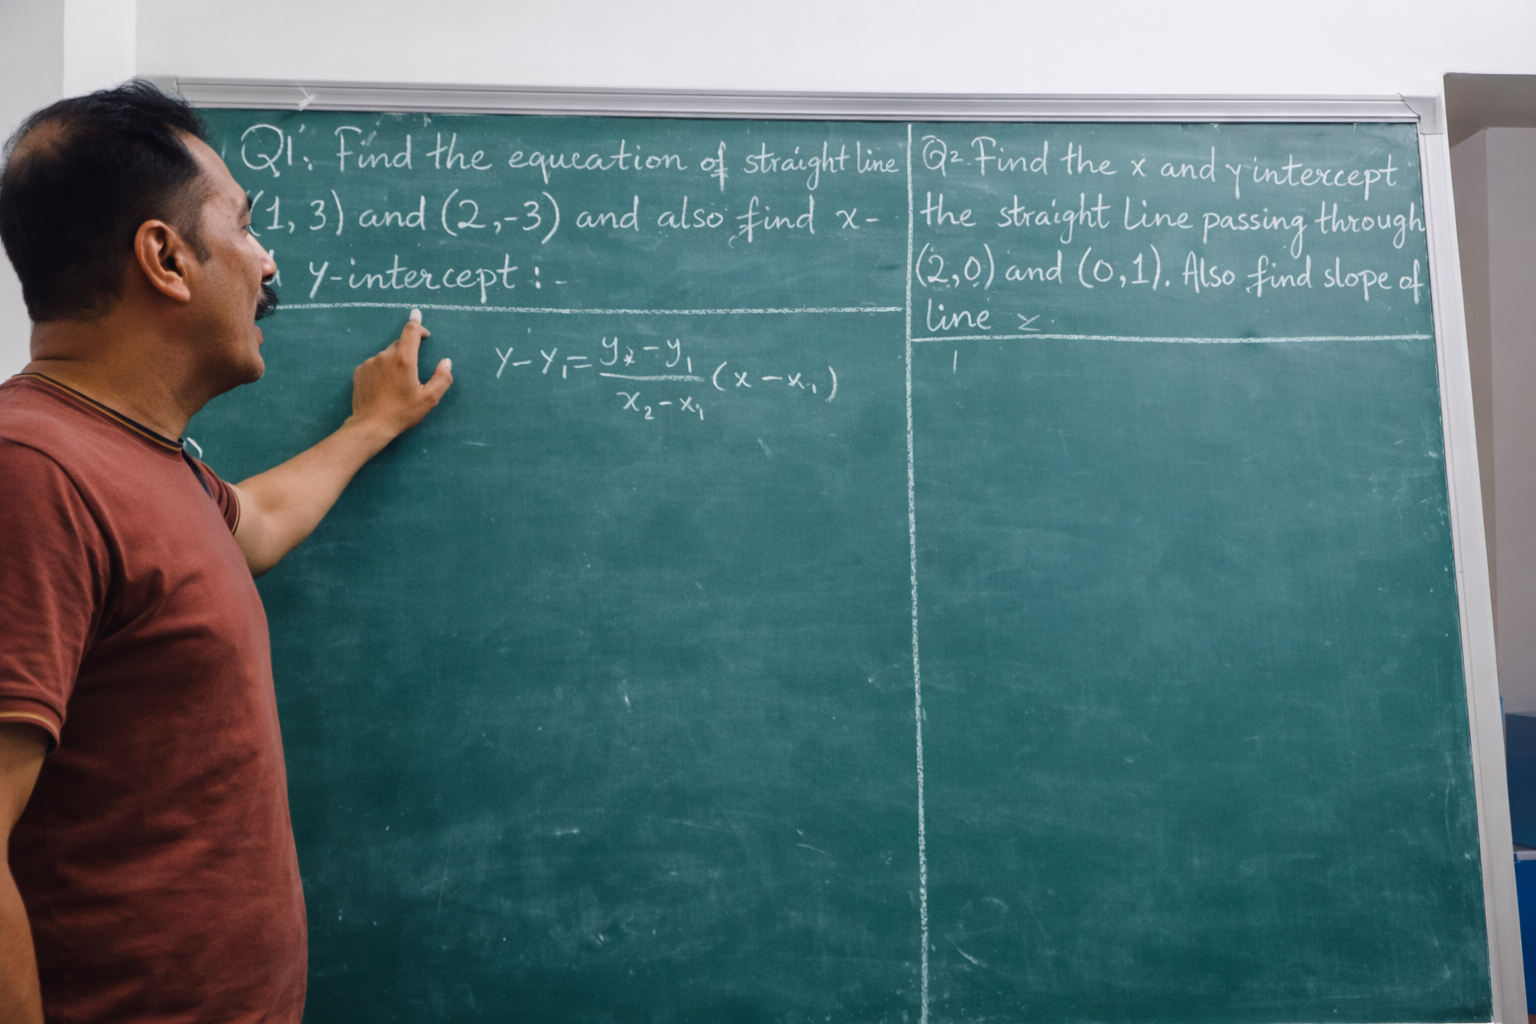 Q1: Find the equeation of straight line
(1, 3) and (2,-3) and also find x-
y-intercept :-
y-y₁= y₂-y₁ (x-x₁)
x₂-x₁
Q2. Find the x and y intercept
the straight Line passing through
(2,0) and (0,1). Also find slope of
line